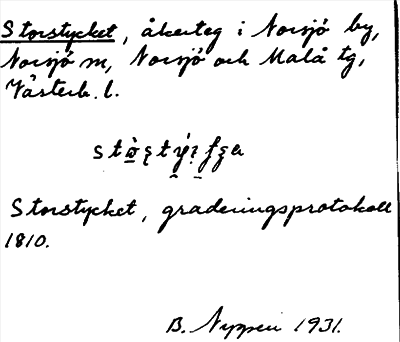 Storstycket, åkerteg i Norsjö by,
Norsjö sn, Norsjö och Malå tg,
Västerb. l.
Storstycket, graderingsprotokoll
1810.
B. Nyppen 1931.